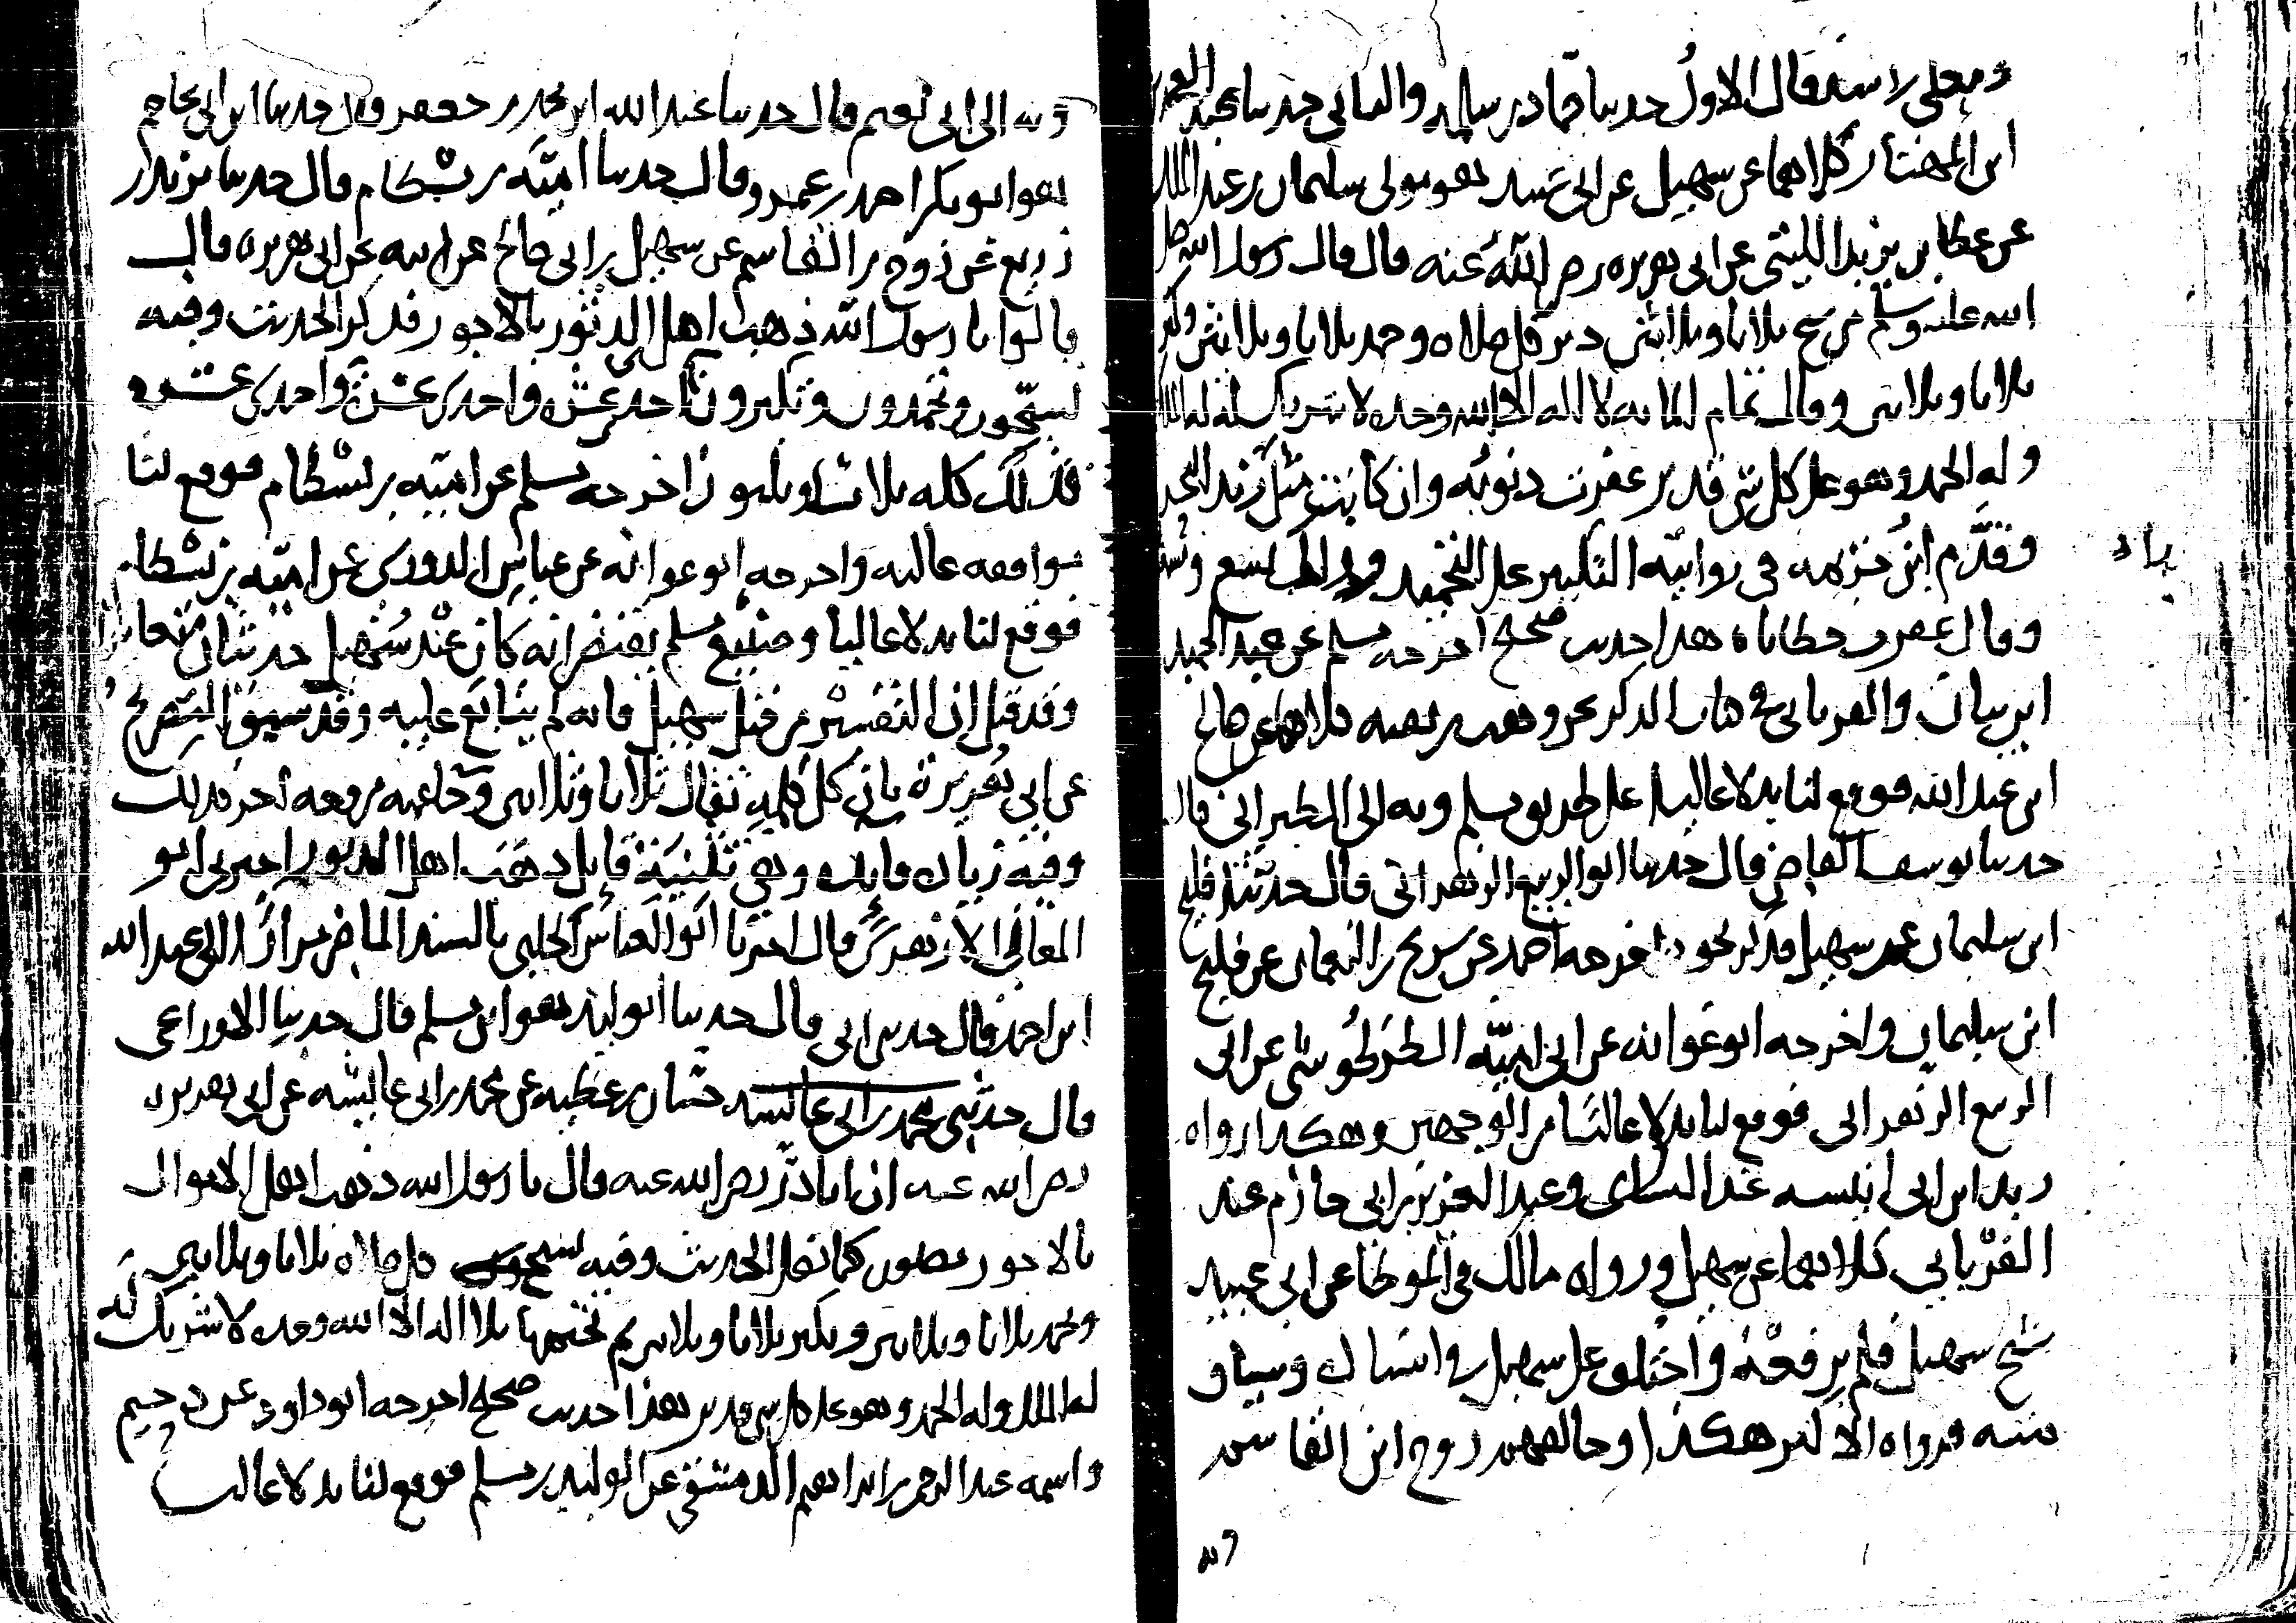 ومعلى بن اسد قال الاول حدثنا حماد بن سلمة والثاني حدثنا عبد العزيز
ابن المختار كلاهما عن سهيل عن ابي عبيد هو مولى سليمان بن عبد الملك
عن عطا بن يزيد الليثي عن ابي هريرة رضي الله عنه قال قال رسول الله صلى
الله عليه وسلم من سبح ثلاثا وثلاثين دبر كل صلاة وحمد ثلاثا وثلاثين وكبر
ثلاثا وثلاثين وقال تمام المائة لا اله الا الله وحده لا شريك له له الملك
وله الحمد وهو على كل شي قدير غفرت ذنوبه وان كانت مثل زبد البحر
وقدم ابن خزيمة في روايته التكبير على التحميد وزاد تسع وتسعون
وقال غفرت خطاياه هذا حديث صحيح اخرجه مسلم عن عبد الحميد
ابن بيان والفريابي في كتاب الذكر عن وهب بن بقية كلاهما عن خالد
ابن عبد الله فوقع لنا بدلا عاليا على طريق مسلم وبه الى الطبراني قال
حدثنا يوسف القاضي قال حدثنا ابو الربيع الزهراني قال حدثنا فليح
ابن سليمان عن سهيل فذكر نحوه اخرجه احمد عن سريج بن النعمان عن فليح
ابن سليمان واخرجه ابو عوانة عن ابي امية الطرطوسي عن ابي
الربيع الزهراني فوقع لنا بدلا عاليا من الوجهين وهكذا رواه
زيد ابن ابي انيسة عند النسائي وعبد العزيز بن ابي حازم عند
الفريابي كلاهما عن سهيل ورواه مالك في الموطا عن ابي عبيد
شيخ سهيل فلم يرفعه واختلف على سهيل في اسناده وسياق
متنه فرواه الاكثر هكذا وخالفهم روح ابن القاسم
وبه
وبه الى ابي نعيم قال حدثنا عبد الله ابن محمد بن جعفر قال حدثنا ابن ابي عاصم
هو ابو بكر احمد بن عمرو قال حدثنا امية بن بسطام قال حدثنا يزيد بن
زريع عن روح بن القاسم عن سهيل بن ابي صالح عن ابيه عن ابي هريرة قال
قالوا يا رسول الله ذهب اهل الدثور بالاجور فذكر الحديث وفيه
تسبحون وتحمدون وتكبرون احد عشر واحدى عشرة واحدى عشرة
فذلك كله ثلاث وثلاثون اخرجه مسلم عن امية بن بسطام فوقع لنا
موافقة عالية واخرجه ابو عوانة عن عباس الدوري عن امية بن بسطام
فوقع لنا بدلا عاليا وصنيع مسلم يقتضي انه كان عند سهيل حديثان متغايران
وقد قيل ان التفسير من قبل سهيل فانه لم يتابع عليه وقد سبق التصريح
عن ابي هريرة بان كل كلمة تقال ثلاثا وثلاثين وجا عنه مرفوعا نحو ذلك
وفيه زيادة فائدة وهي تسمية قائل ذهب اهل الدثور اخبرني ابو
المعالي الازهري قال اخبرنا ابو العباس الحلبي بالسند الماضي مرارا الى عبد الله
ابن احمد قال حدثني ابي قال حدثنا الوليد هو ابن مسلم قال حدثنا الاوزاعي
قال حدثني محمد بن ابي عائشة حسان بن عطية عن محمد بن ابي عائشة عن ابي هريرة
رضي الله عنه ان ابا ذر رضي الله عنه قال يا رسول الله ذهب اهل الاموال
بالاجور يصلون كما نصلي الحديث وفيه تسبح دبر كل صلاة ثلاثا وثلاثين
وتحمد ثلاثا وثلاثين وتكبر ثلاثا وثلاثين ثم تختمها بلا اله الا الله وحده لا شريك له
له الملك وله الحمد وهو على كل شي قدير هذا حديث صحيح اخرجه ابو داود عن دحيم
واسمه عبد الرحمن بن ابراهيم الدمشقي عن الوليد بن مسلم فوقع لنا بدلا عاليا